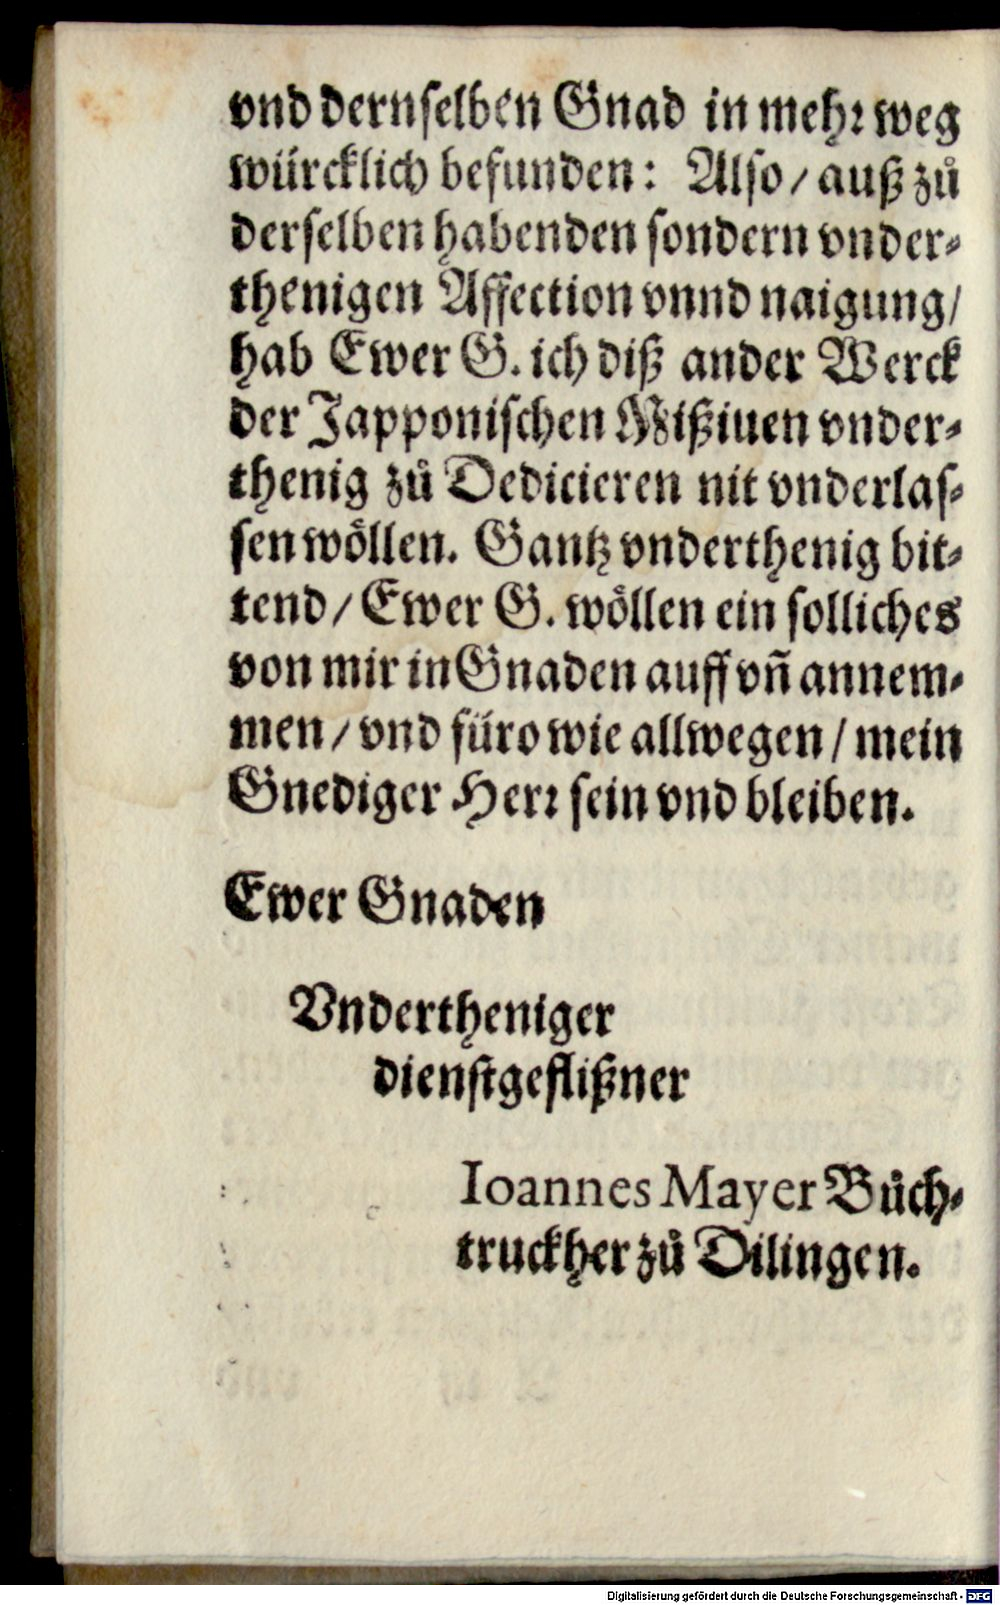 vnd dernselben Gnad in mehr weg
würcklich befunden: Also / auß zů
derselben habenden sondern vnder-
thenigen Affection vnnd naigung /
hab Ewer G. ich diß ander Werck
der Japponischen Mißiuen vnder-
thenig zů Dedicieren nit vnderlas-
sen wöllen. Gantz vnderthenig bit-
tend / Ewer G. wöllen ein solliches
von mir in Gnaden auff vñ annem-
men / vnd füro wie allwegen / mein
Gnediger Herr sein vnd bleiben.
Ewer Gnaden
Vndertheniger
dienstgeflißner
Ioannes Mayer Bůch-
truckher zů Dilingen.
Digitalisierung gefördert durch die Deutsche Forschungsgemeinschaft - DFG